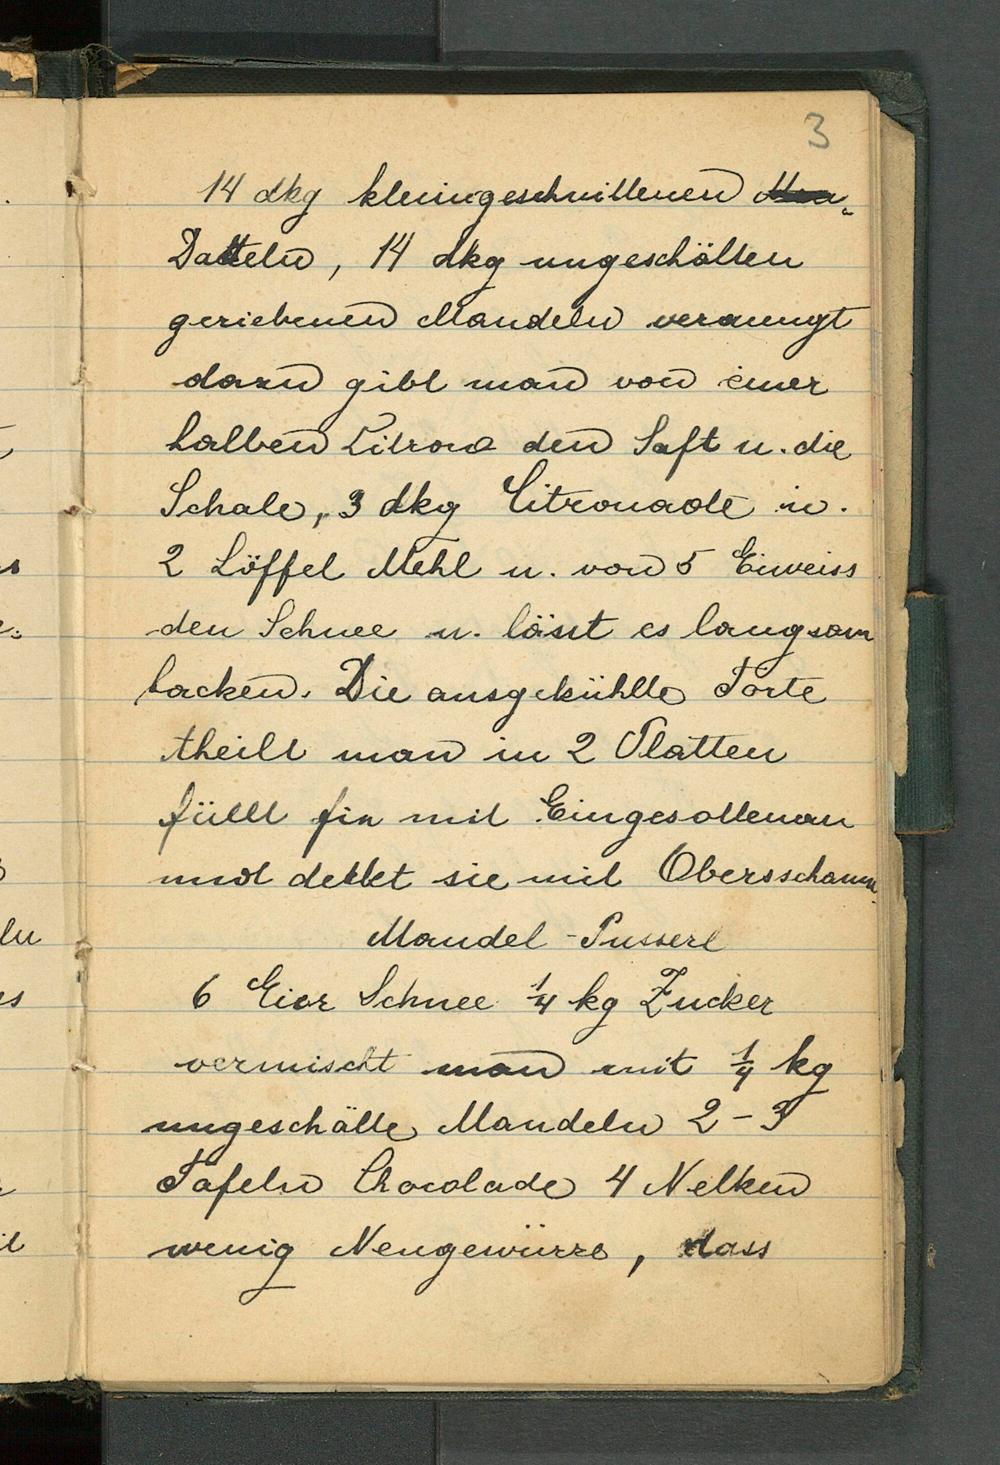 3
14 dkg kleingeschnittenen
Datteln, 14 dkg ungeschälten
geriebenen Mandeln vermengt
dann gibt man von einer
halben Citrone den Saft u. die
Schale, 3 dkg Citronade u.
2 Löffel Mehl u. von 5 Eiweiss
den Schnee u. lässt es langsam
backen. Die ausgekühlte Torte
theilt man in 2 Platten
füllt sie mit Eingesottenen
und dekket sie mit Obersschaum
Mandel-Pusserl
6 Eier Schnee ¼ kg Zucker
vermischt man mit ¼ kg
ungeschälte Mandeln 2-3
Tafeln Chocolade 4 Nelken
wenig Neugewürze, dass